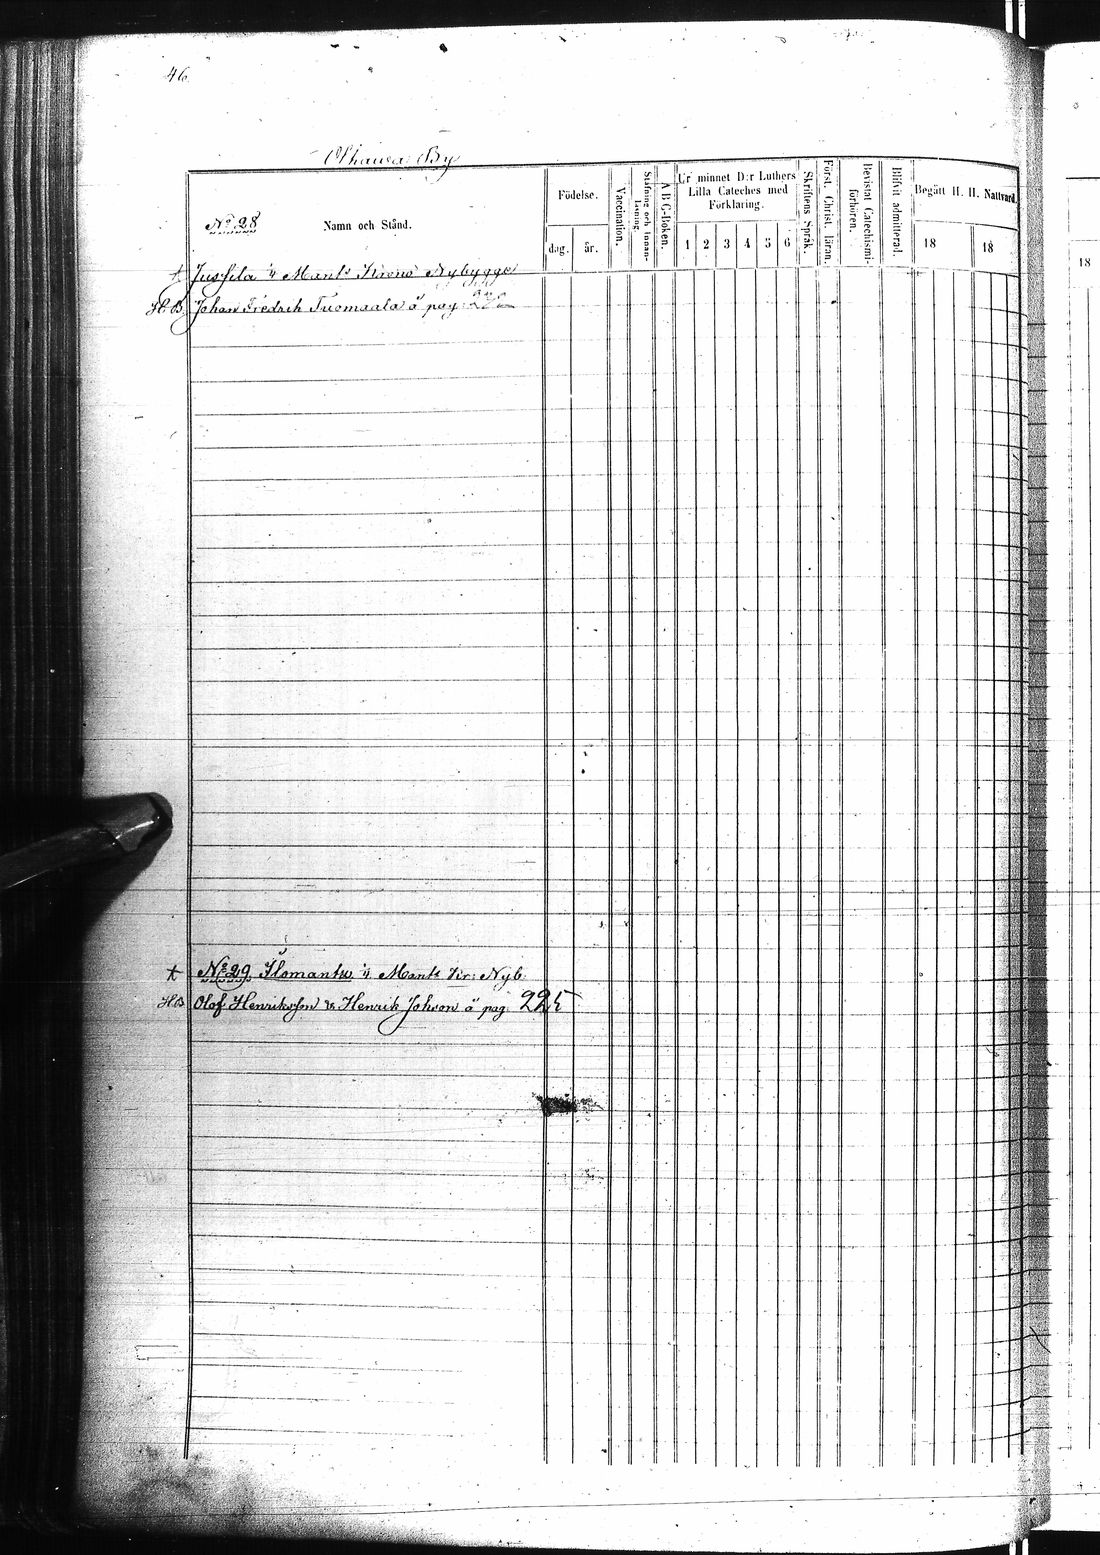 46.
Ohawa By
No 28
Namn och Stånd.
Födelse.
dag. år.
Vaccination.
Stafning och Innan-
läsning.
A B C-Boken.
Ur minnet D:r Luthers
Lilla Cateches med
Förklaring.
1 2 3 4 5 6
Skriftens Språk.
Först. Christ. läran.
Bevistat Catechismi-
förhören.
Blifvit admitterad.
Begått H. H. Nattvard.
18 18
18
Jussila Mantl Krono Nybygge
H.B. Johan Fredrik Tuomaala å pag:
No 29 Ilomantu Mantl Kr: Nyb.
H.B. Olof Henriksson & Henrik Johson å pag: 225